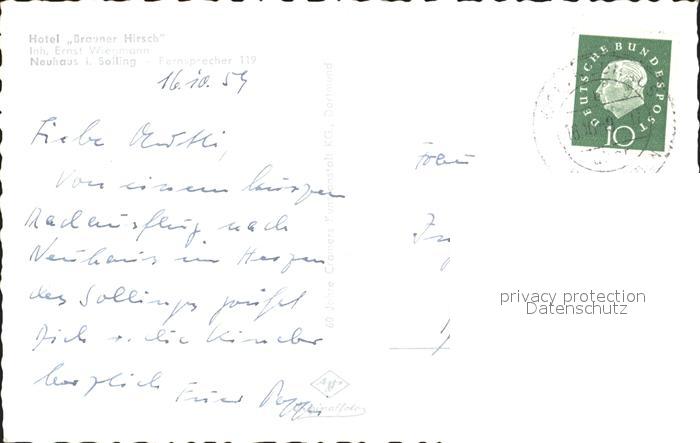 Hotel „Brauner Hirsch"
Inh. Ernst Wiegmann
Neuhaus i. Solling - Fernsprecher 119
16.10.59
Liebe Mutti,
Von einem kurzen
Radausflug nach
Neuhaus im Herzen
des Sollings grüßt
Dich u. die Kinder
herzlich Euer
60 Jahre Cramers Kunstanstalt KG., Dortmund
DEUTSCHE BUNDESPOST
10
Frau
privacy protection
Datenschutz